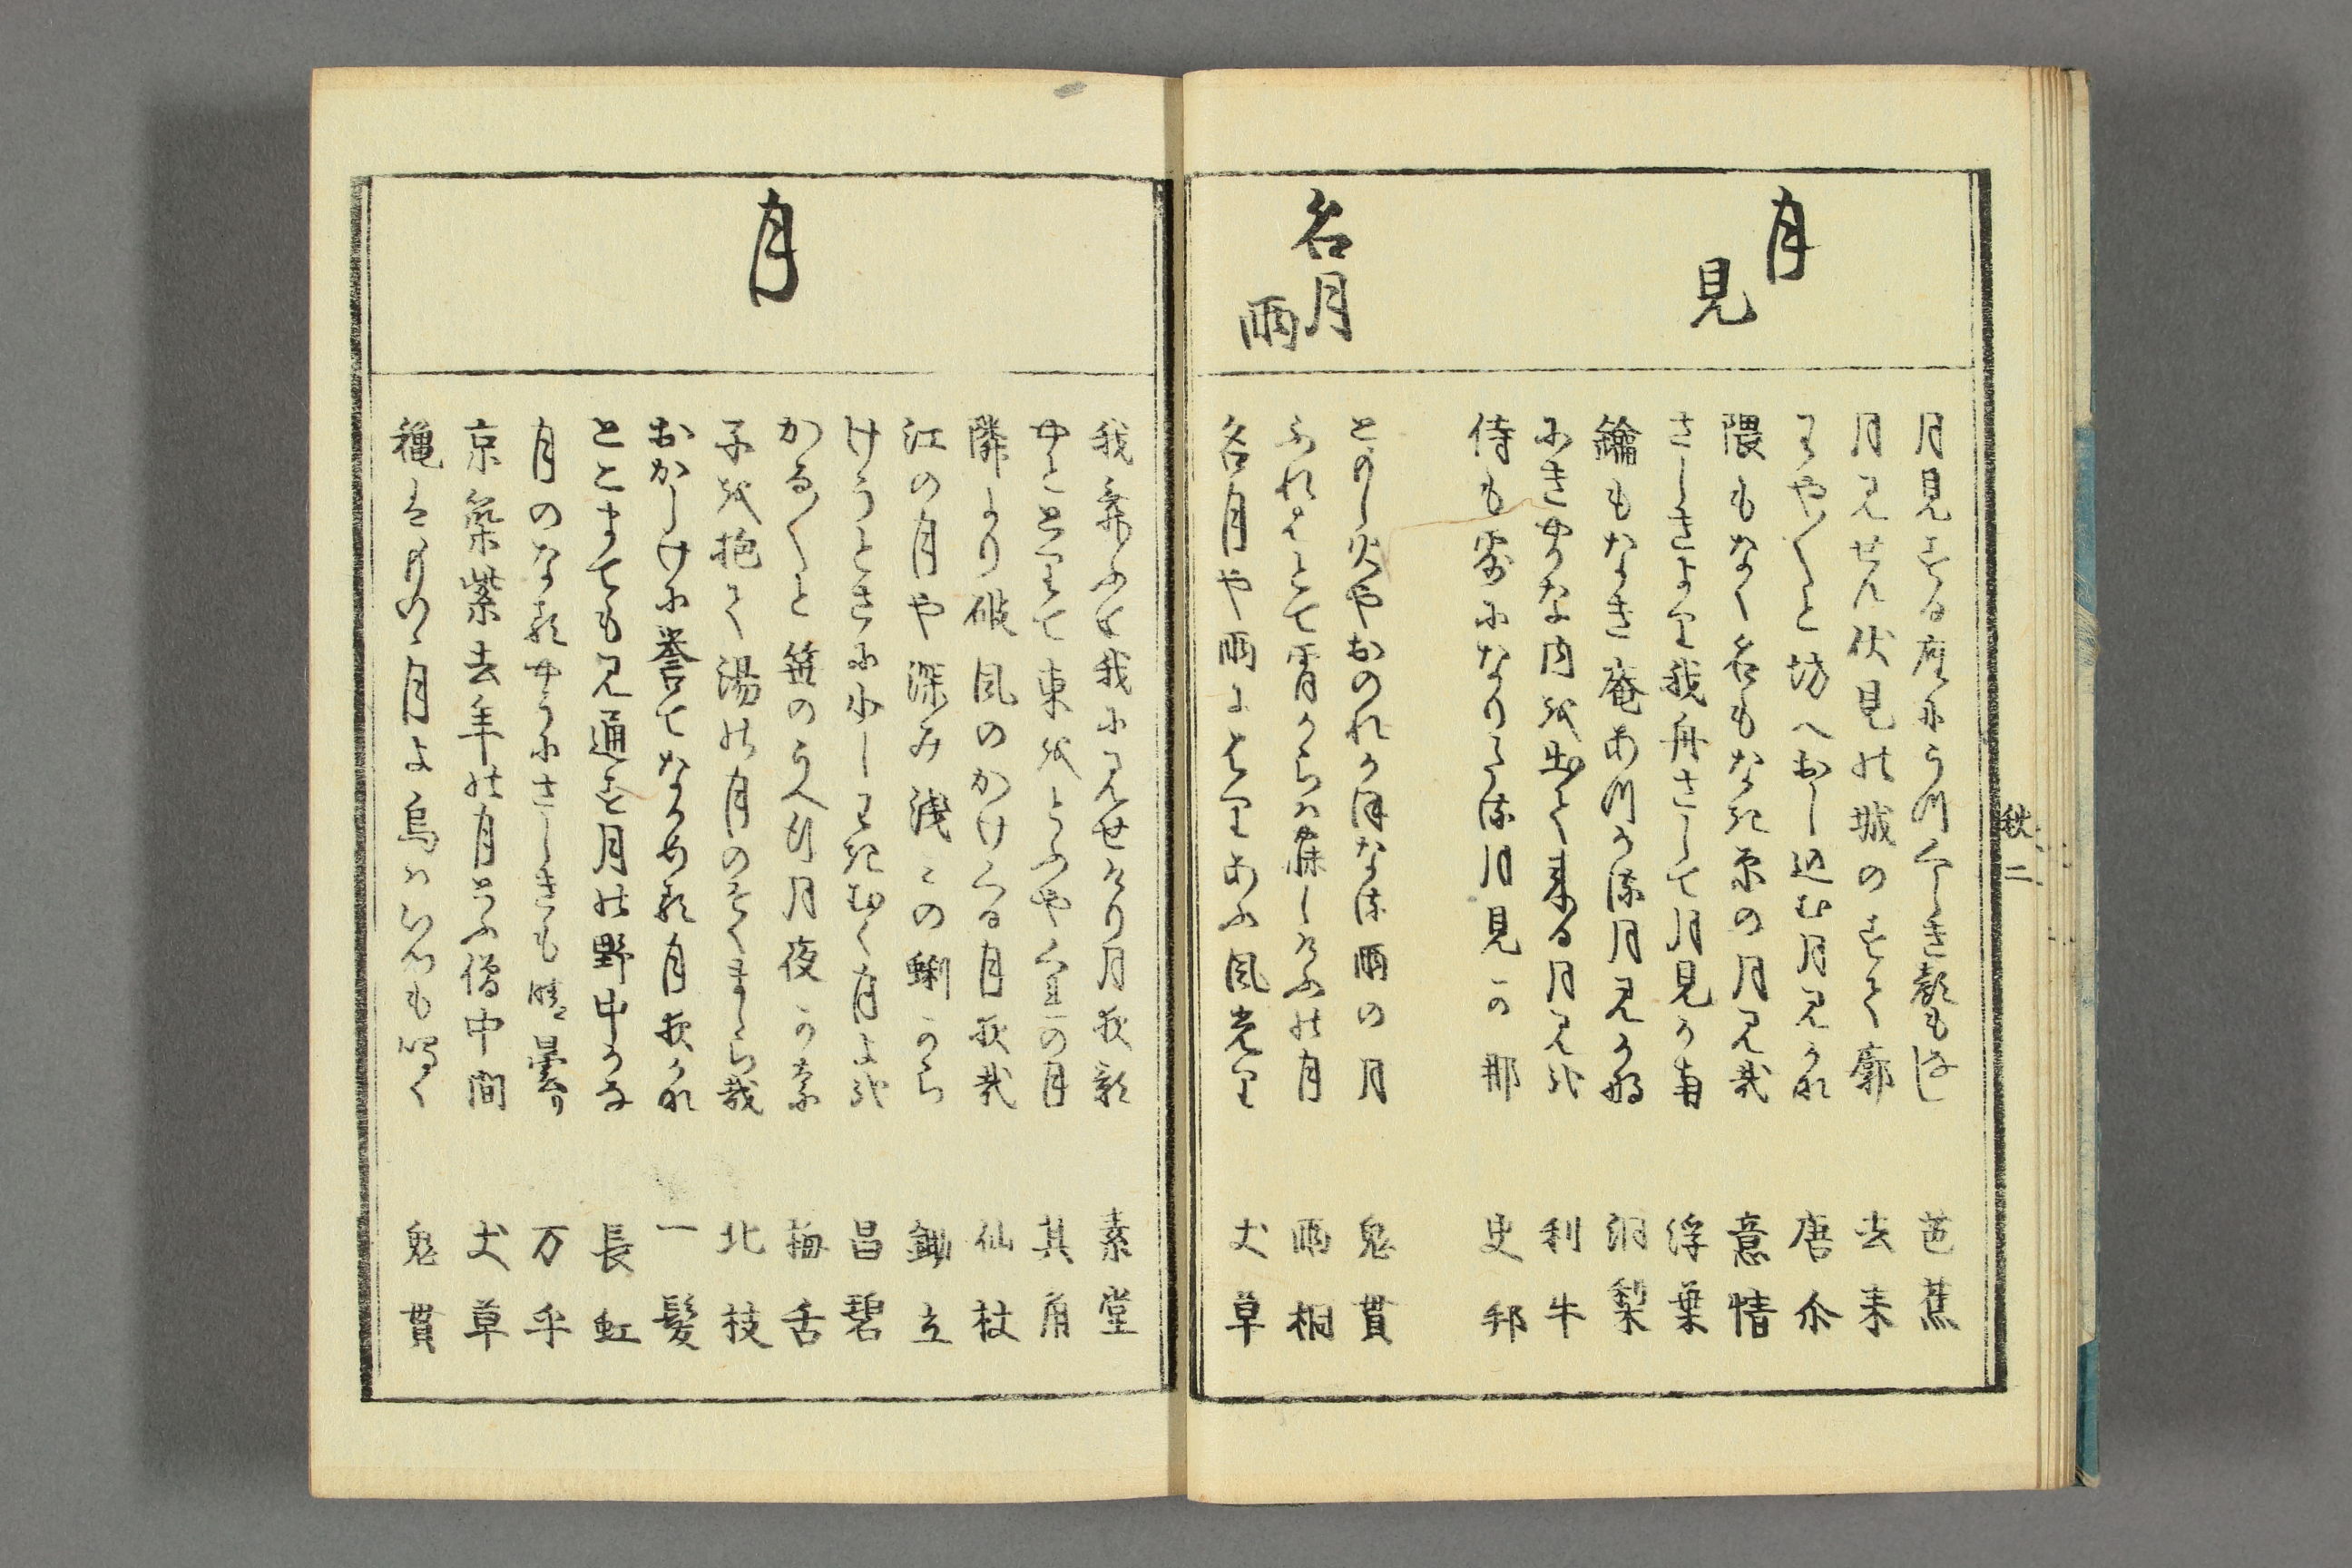 月見
月見する座にうつくしき顔もなし 芭蕉
月見せん伏見の城のすて廓 去来
わや／＼と坊へおし込む月見かな 唐尒
隈もなく名もなき原の月見哉 意情
さしきより我舟さして月見かな 浮葉
鑰もなき庵あつかる月見かな 洞梨
内を出て来る月見哉 利牛
侍も客になりたる月見かな 史邦
名月雨
ともし火やおのれかほなる雨の月 鬼貫
ふれはとて宵からは寐しけふの月 雨桐
名月や雨よはりあふ風光り 丈草
月
我舞ふて我に見せけり月夜影 素堂
東をとふや窓の月 其角
隣より破風のかけくる月夜哉 仙杖
江の月や深み浅みの蜊から 鋤立
けうときに少しわきむく月よ哉 昌碧
かる／＼と笹のうへ行月夜かな 梅舌
子を抱て湯の月のそくましら哉 北枝
おかしけに誉てなかめる月夜かな 一髪
とこまても見通す月の野中かな 長虹
月のなる やうにさしきも晴曇り 万乎
京築紫去年の月とふ僧中間 丈草
穐はものゝ月よ烏はいつも鳴く 鬼貫
秋 二